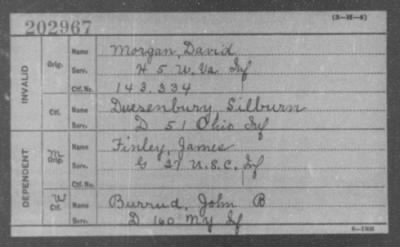 (3-M-4)
202967
INVALID
Orig. Name Morgan, David
Serv. H 5 W. Va Inf
Ctf. No. 143,334
Ctf. Name Duesenbury, Silburn
Serv. D 51 Ohio Inf
DEPENDENT
M Orig. Name Finley, James
Serv. G 27 U.S.C. Inf
Ctf. No.
W Ctf. Name Burrud, John B
Serv. D 160 NY If